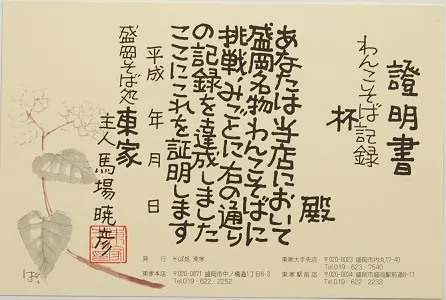 證明書
わんこそば記録
杯
殿
あなたは当店において
盛岡名物わんこそばに
挑戦みごとに右の通り
の記録を達成しました
ここにこれを証明します
平成 年 月 日
盛岡そば処 東家
主人 馬場暁彦
ばく
発行 そば処 東家
東家本店 〒020-0871 盛岡市中ノ橋通1丁目8-3
Tel.019・622・2252
東家大手先店 〒020-0023 盛岡市内丸17-40
Tel.019・623・7540
東家駅前店 〒020-0034 盛岡市盛岡駅前通8-11
Tel.019・622・2233